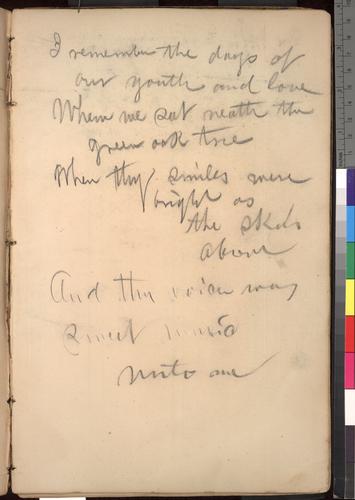 I remember the days of
our youth and love
When we sat neath the
green oak tree
When thy smiles were
bright as
the skies
above
And thy voice was
sweet music
unto me